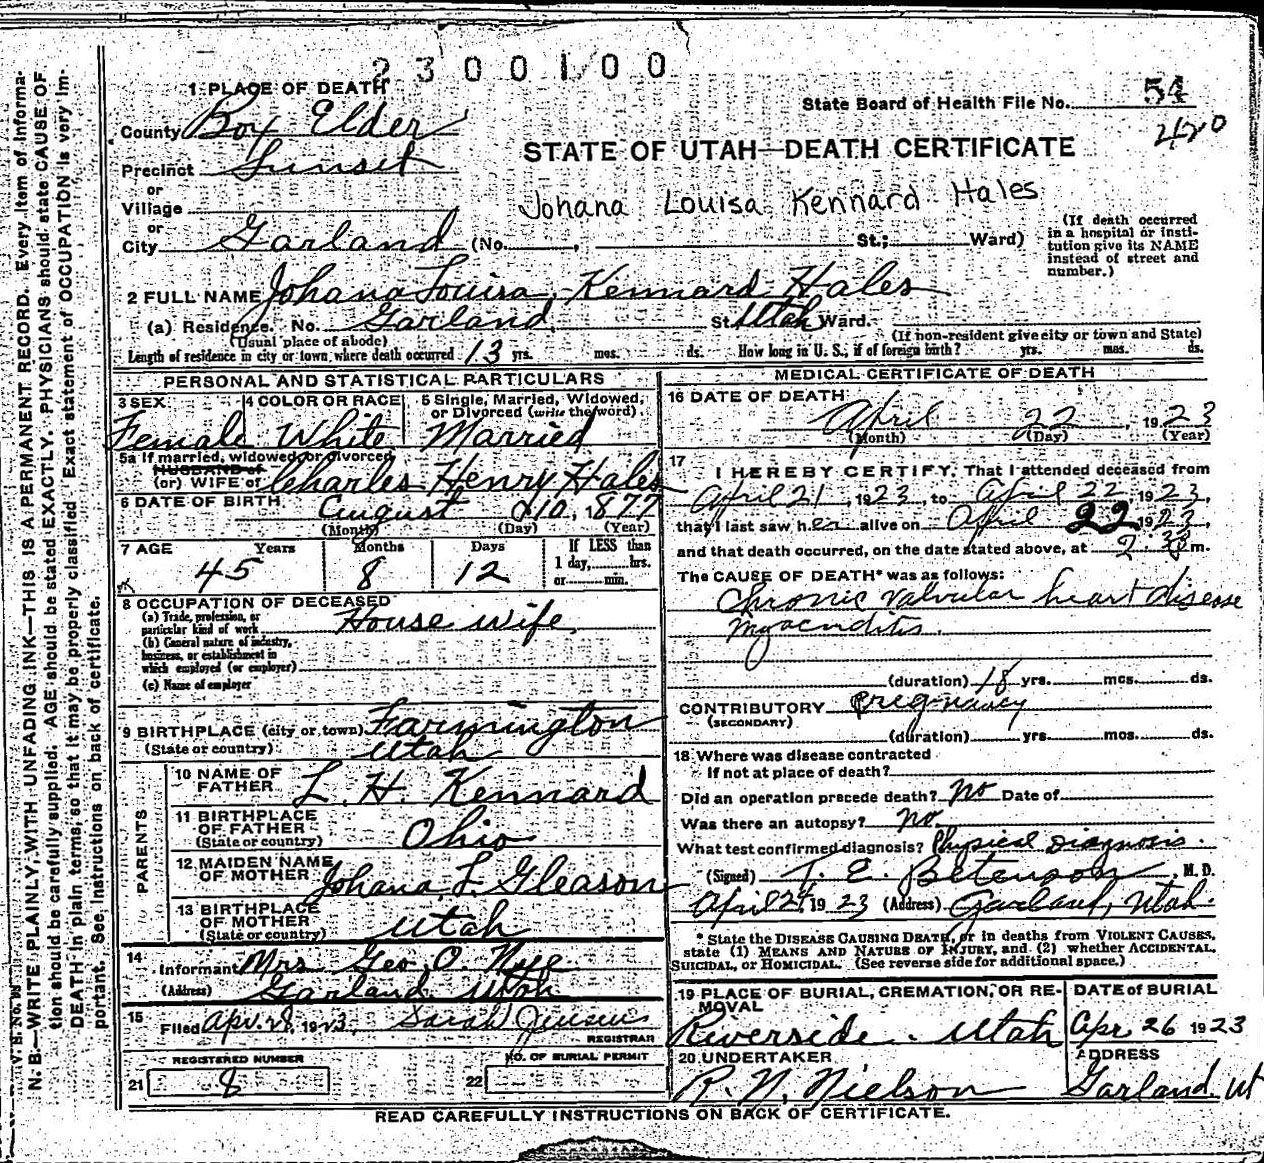 2300100
1 PLACE OF DEATH
State Board of Health File No. 54
County Box Elder
420
STATE OF UTAH—DEATH CERTIFICATE
Precinct Sunset
or
Village
Johana Louisa Kennard Hales
or
City Garland (No. , St.; Ward)
(If death occurred in a hospital or institution give its NAME instead of street and number.)
2 FULL NAME Johana Louisa Kennard Hales
(a) Residence. No. Garland St. Utah Ward.
(Usual place of abode) (If non-resident give city or town and State)
Length of residence in city or town where death occurred 13 yrs. mos. ds. How long in U. S., if of foreign birth? yrs. mos. ds.
PERSONAL AND STATISTICAL PARTICULARS
3 SEX 4 COLOR OR RACE 5 Single, Married, Widowed, or Divorced (write the word)
Female White Married
5a If married, widowed, or divorced
HUSBAND of
(or) WIFE of Charles Henry Hales
6 DATE OF BIRTH August 10, 1877
(Month) (Day) (Year)
7 AGE Years Months Days If LESS than 1 day, hrs. or min.
45 8 12
8 OCCUPATION OF DECEASED
(a) Trade, profession, or particular kind of work House wife
(b) General nature of industry, business, or establishment in which employed (or employer)
(c) Name of employer
9 BIRTHPLACE (city or town) Farmington
(State or country) Utah
PARENTS
10 NAME OF FATHER L. H. Kennard
11 BIRTHPLACE OF FATHER (State or country) Ohio
12 MAIDEN NAME OF MOTHER Johana L Gleason
13 BIRTHPLACE OF MOTHER (State or country) Utah
14 Informant Mrs Geo. O. Nye
(Address) Garland Utah
15 Filed Apr. 28, 1923. Sarah Jensen
REGISTRAR
REGISTERED NUMBER NO. OF BURIAL PERMIT
21 8 22
MEDICAL CERTIFICATE OF DEATH
16 DATE OF DEATH
April 22, 1923
(Month) (Day) (Year)
17 I HEREBY CERTIFY, That I attended deceased from
April 21, 1923, to April 22, 1923,
that I last saw her alive on April 22 1923,
and that death occurred, on the date stated above, at m.
The CAUSE OF DEATH* was as follows:
Chronic valvular heart disease
Myocarditis.
(duration) 18 yrs. mos. ds.
CONTRIBUTORY pregnancy
(SECONDARY)
(duration) yrs. mos. ds.
18 Where was disease contracted
If not at place of death?
Did an operation precede death? No Date of
Was there an autopsy? No
What test confirmed diagnosis? Physical Diagnosis.
(Signed) T. E. Betenson, M. D.
April 24, 1923 (Address) Garland, Utah.
* State the DISEASE CAUSING DEATH, or in deaths from VIOLENT CAUSES,
state (1) MEANS AND NATURE OF INJURY, and (2) whether ACCIDENTAL,
SUICIDAL, or HOMICIDAL. (See reverse side for additional space.)
19 PLACE OF BURIAL, CREMATION, OR REMOVAL DATE of BURIAL
Riverside. Utah Apr 26 1923
20 UNDERTAKER ADDRESS
R. N. Nielson Garland, Ut
READ CAREFULLY INSTRUCTIONS ON BACK OF CERTIFICATE.
N. B.—WRITE PLAINLY, WITH UNFADING INK—THIS IS A PERMANENT RECORD. Every item of informa-
tion should be carefully supplied. AGE should be stated EXACTLY. PHYSICIANS should state CAUSE OF
DEATH in plain terms, so that it may be properly classified. Exact statement of OCCUPATION is very im-
portant. See instructions on back of certificate.